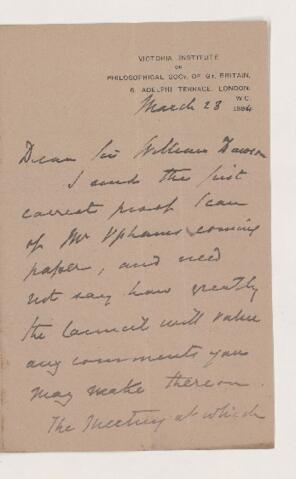 VICTORIA INSTITUTE
OR
PHILOSOPHICAL SOCY. OF GT. BRITAIN,
6. ADELPHI TERRACE, LONDON.
W.C.
March 23 189
Dear Sir William Dawson
I send the first
correct proof I can
of Mr Upham's coming
paper, and need
not say how greatly
the Council will value
any comments you
may make thereon.
The Meeting at which